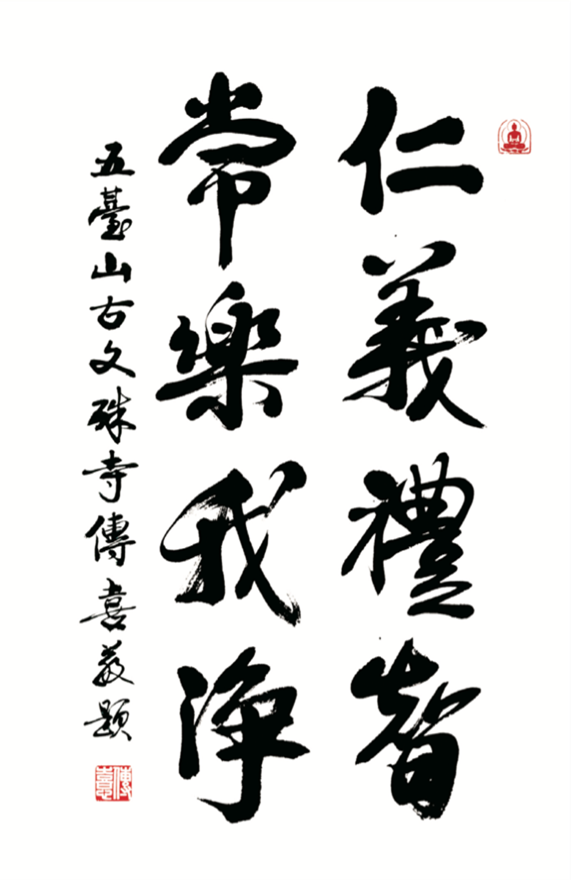 仁義禮智
常樂我净
五臺山古文殊寺傳喜敬題
傳喜